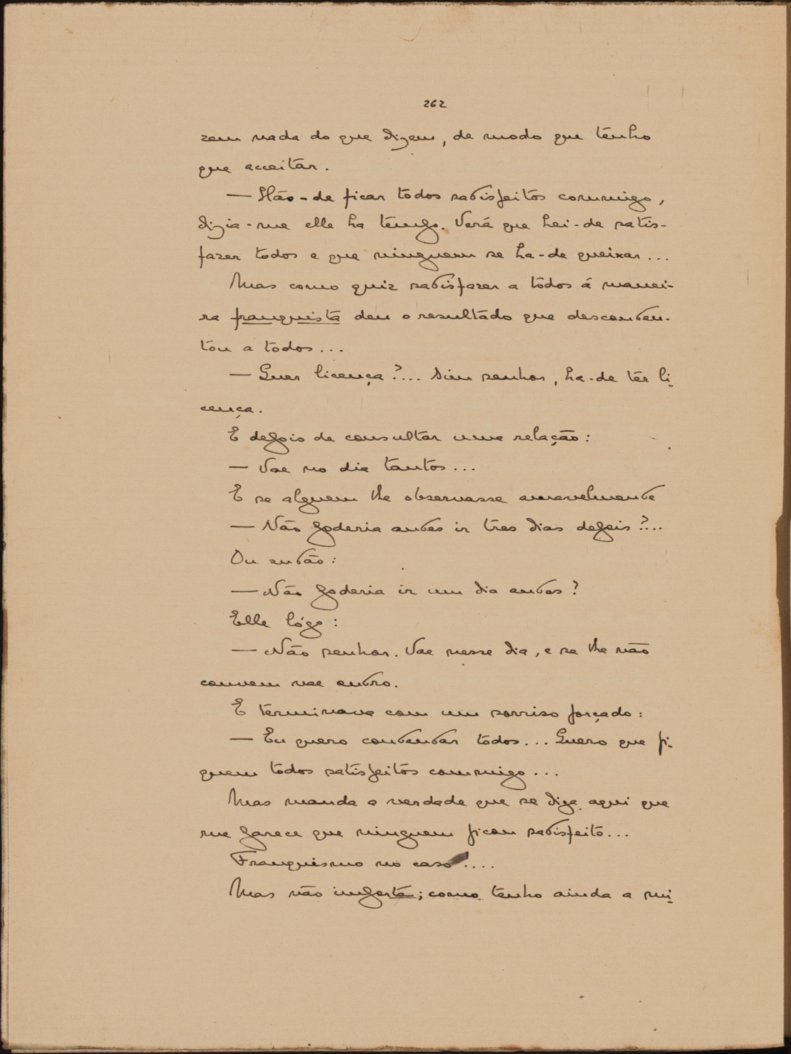 262
zem nada do que dizem, de modo que tenho
que acceitar.
— Hão-de ficar todos satisfeitos commigo,
dizia-me elle ha tempo. Verá que hei-de satis-
fazer todos e que ninguem se ha-de queixar...
Mas como quiz satisfazer a tôdos á manei-
ra franquista deu o resultado que desconten-
tou a todos...
— Quer licença?... Sim senhor, ha-de têr li-
cença.
E depois de consultar uma relação:
— Vae no dia tantos...
E se alguem lhe observasse amavelmente
— Não poderia antes ir tres dias depois?...
Ou então:
— Não poderia ir um dia antes?
Elle lógo:
— Não senhor. Vae nesse dia, e se lhe não
convem vae outro.
E terminava com um sorriso forçado:
— Eu quero contentar todos... Quero que fi-
quem todos satisfeitos commigo...
Mas manda a verdade que se diga aqui que
me parece que ninguem ficou satisfeito...
Franquismo no caso....
Mas não importa; como tenho ainda a mi-